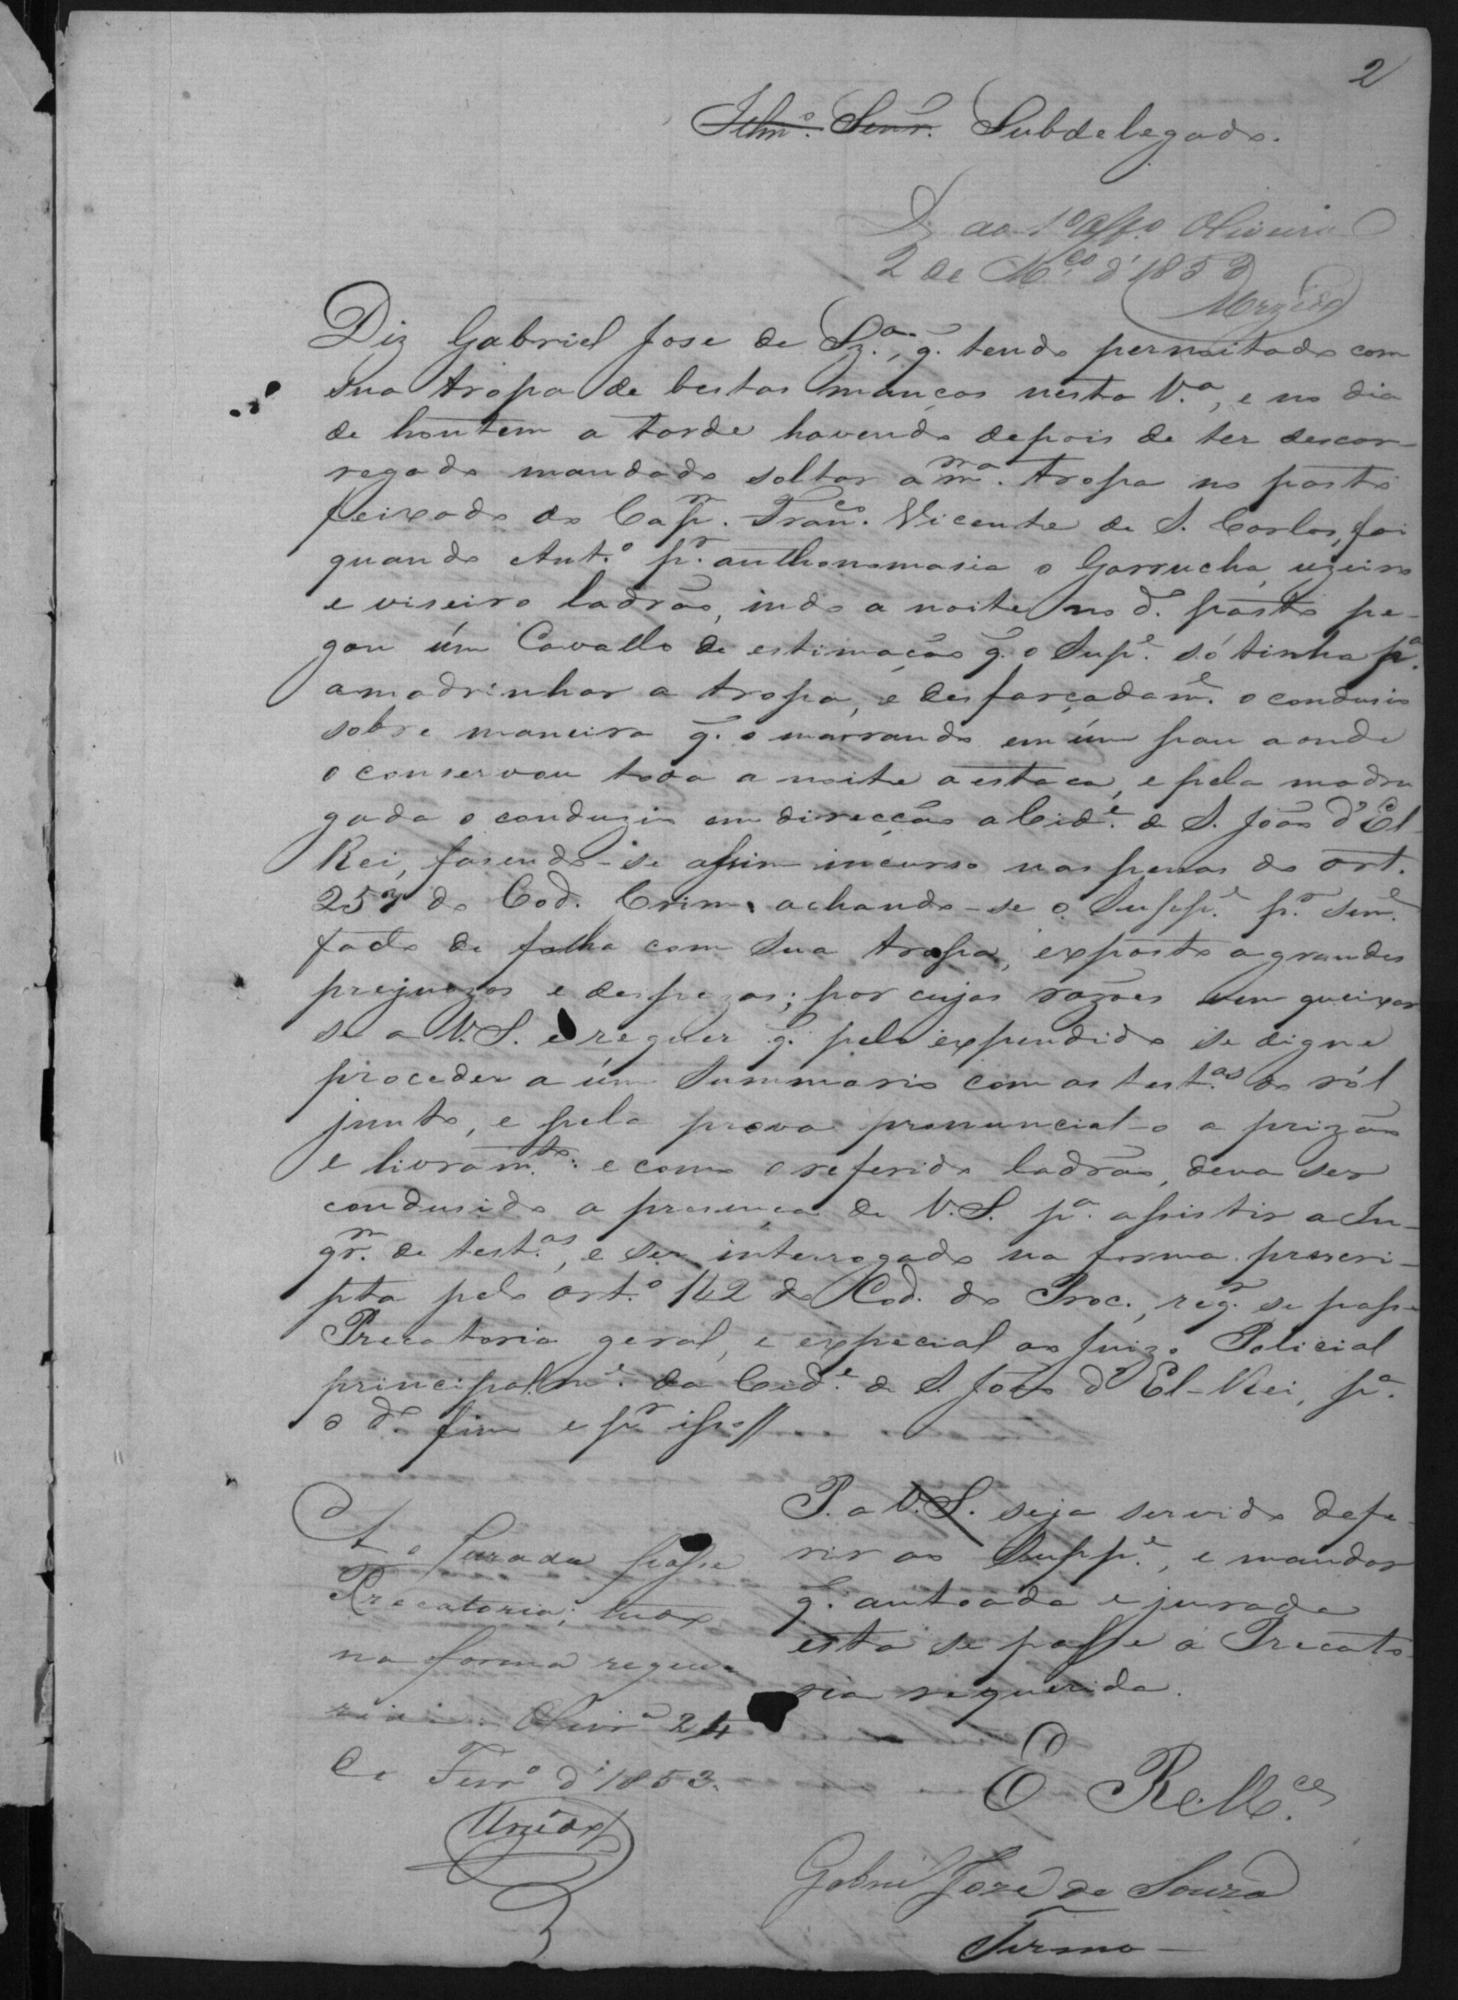 2
Illmo. Senr. Subdelegado.
D. ao 1o Offo. Oliveira
2 de Mço. d'1853
Urzedo
Diz Gabriel Jose de Sza., q. tendo pernoitado com
sua tropa de bestas manças nesta Va., e no dia
de hontem a tarde havendo depois de ter descar-
regado mandado soltar a mma. tropa no pasto
feixado do Capm. Franco. Vicente de S. Carlos, foi
quando Anto. pr. anthonomasia o Garrucha, uzeiro
e viseiro ladrão, indo a noite no do. pasto pe-
gou úm Cavallo de estimação q. o Supe. só tinha pa.
amadrinhar a tropa, e desfarçadame. o condusio
sobre maneira q. o marrando em úm pau aonde
o conservou toda a noite a estaca, e pela madru
gada o conduzio em direcção a Cide. de S. João d'El-
Rei, fasendo-se assim incurso nas penas do art.
257 do Cod. Crim. achando-se o Suppe. pr. seme.
facto de falha com sua tropa, exposto a grandes
prejuozos e despezas; por cujas rasões vem queixar
se a V.S. e requer q. pelo expendido se digne
proceder a úm Summario com as testas. do ról
junto, e pela prova pronuncial-o a prizão
e livramto.: e como o referido ladrão, deva ser
condusido a presença de V.S. pa. assistir a In-
qrm. de testas., e ser interrogado na forma prescri-
pta pelo arto. 142 do Cod. do Proc., reqr. se passe
Precatoria geral, e expecial ao Juizo Policial
principalme. da Cide. de S. João d'El-Rei, pa.
o do. fim e pr. isso//
P. a V.S. seja servido defe-
rir ao Suppe., e mandar
q. autoada e jurada
esta se passe a Precato-
ria requerida.
E. R. Mce.
Gabriel Joze de Souza
A. e Jurada passe
Precatoria, tudo
na forma reque
rida. Olivra 24
de Fevro. d'1853.
Urzedo
Termo